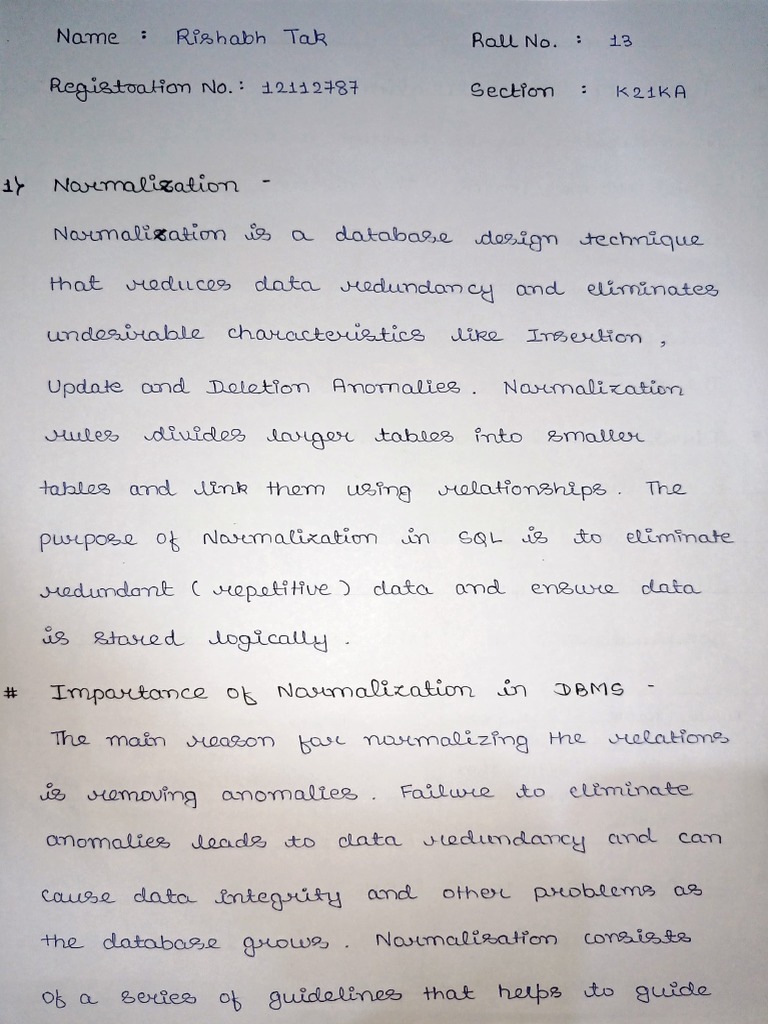 Name : Rishabh Tak Roll No. : 13
Registration No. : 12112787 Section : K21KA
1) Normalization -
Normalization is a database design technique
that reduces data redundancy and eliminates
undesirable characteristics like Insertion ,
Update and Deletion Anomalies . Normalization
rules divides larger tables into smaller
tables and link them using relationships . The
purpose of Normalization in SQL is to eliminate
redundant ( repetitive ) data and ensure data
is stored logically .
# Importance of Normalization in DBMS -
The main reason for normalizing the relations
is removing anomalies . Failure to eliminate
anomalies leads to data redundancy and can
cause data integrity and other problems as
the database grows . Normalisation consists
of a series of guidelines that helps to guide